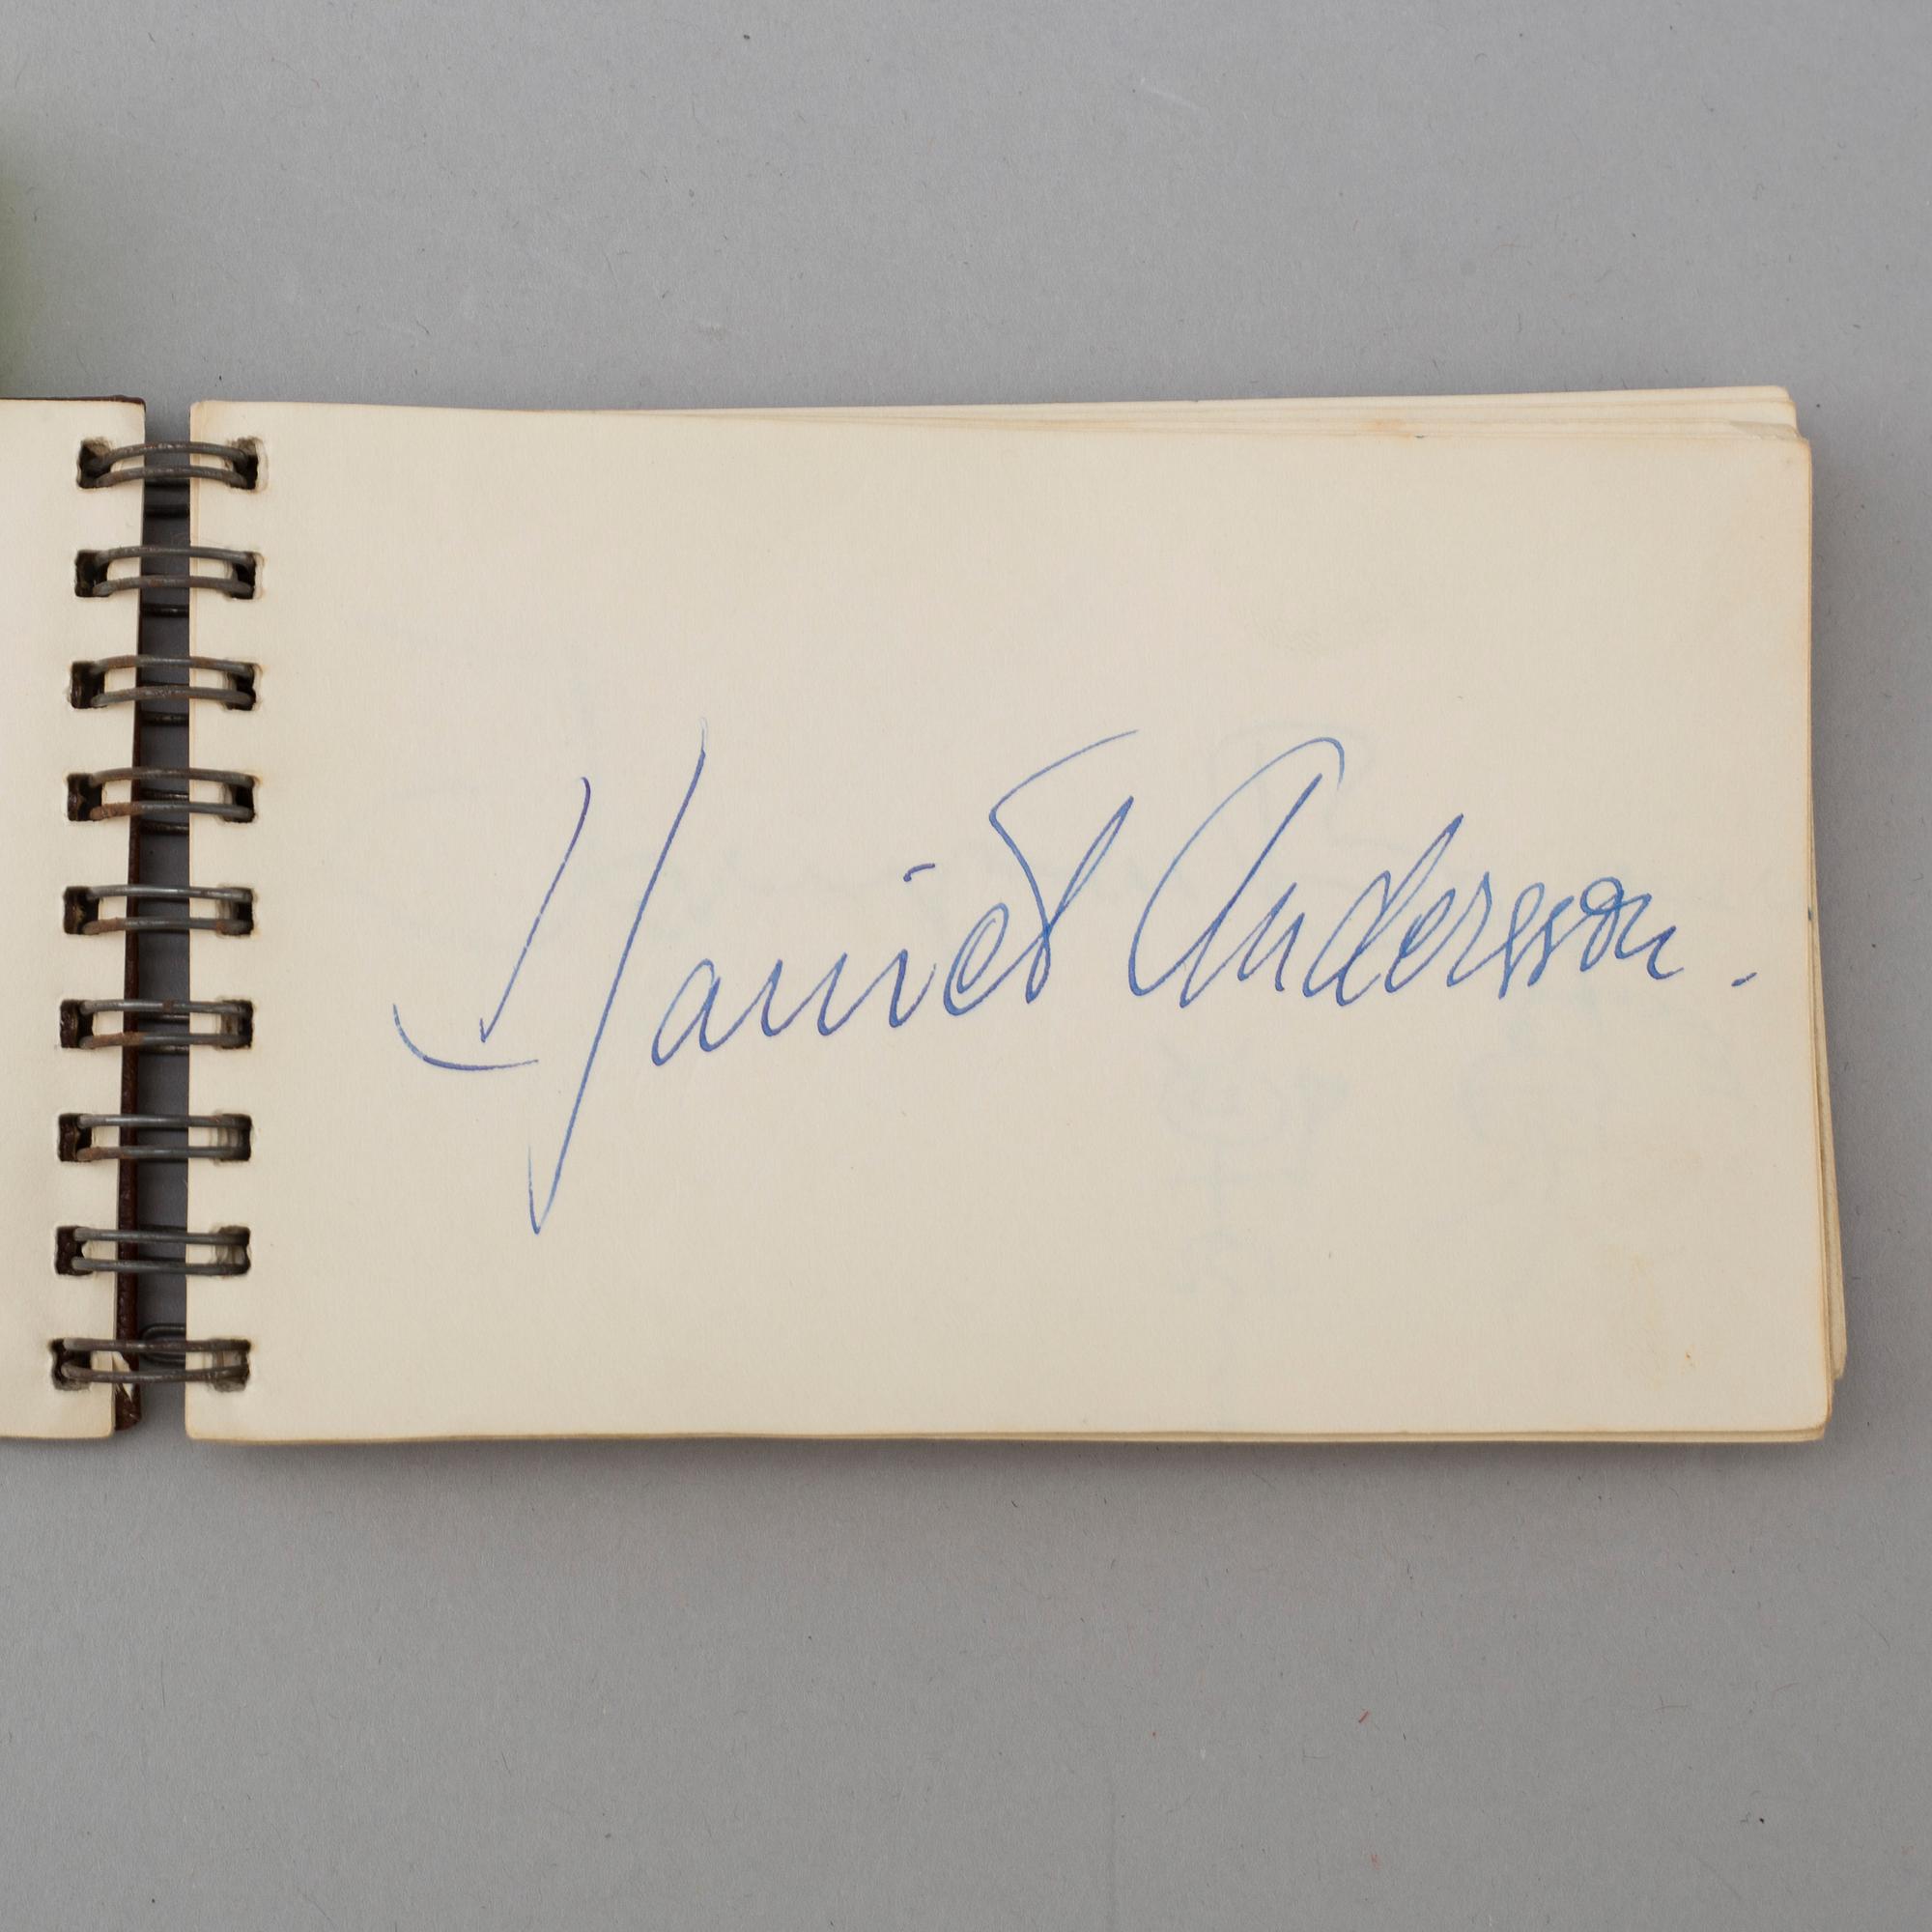 Harriet Andersson.